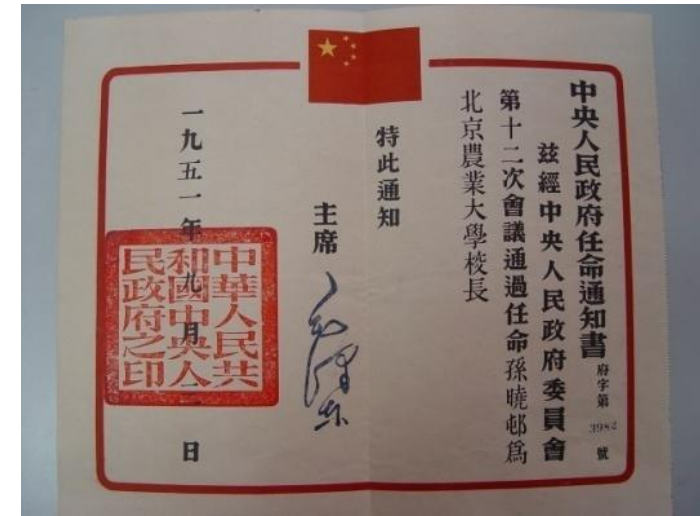 中央人民政府任命通知書 府字第 3982 號
茲經中央人民政府委員會
第十二次會議通過任命孫曉邨爲
北京農業大學校長
特此通知
主席 毛澤东
一九五一年九月二日
中華人民共
和國中央人
民政府之印